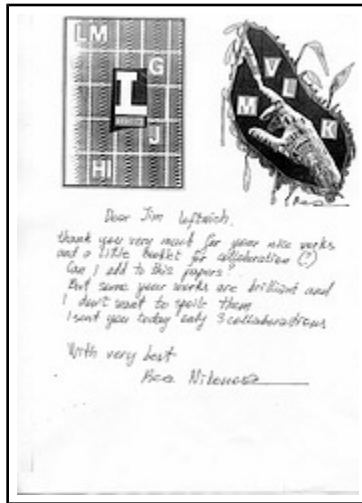 LM
G
L
J
HI
V
L
M
K
Dear Jim Leftwich,
thank you very much for your nice works
and a little booklet for collaboration (?)
Can I add to this papers?
But some your works are brilliant and
I don't want to spoil them
I sent you today only 3 collaborations
With very best